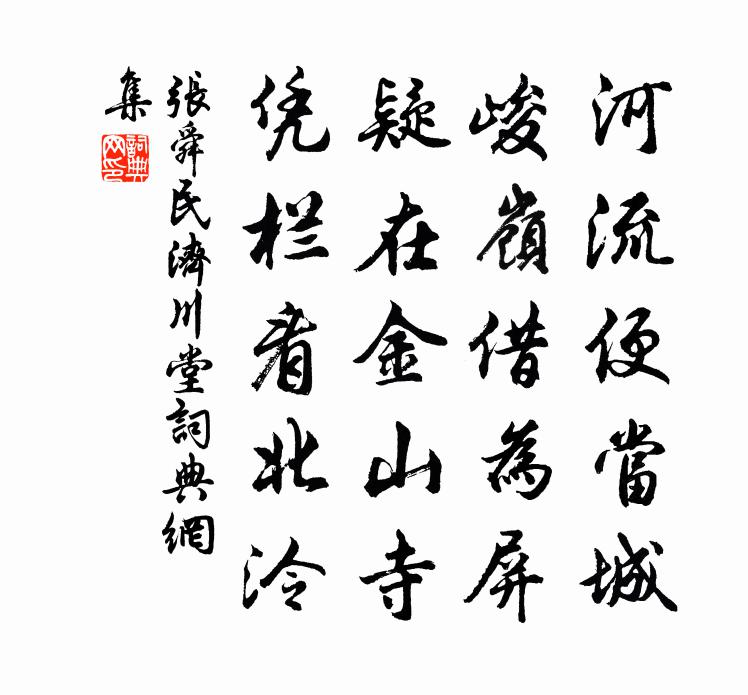 河流便當城
峻嶺借為屏
疑在金山寺
凭栏看北泠
張舜民濟川堂詞典網
集
詞典網印